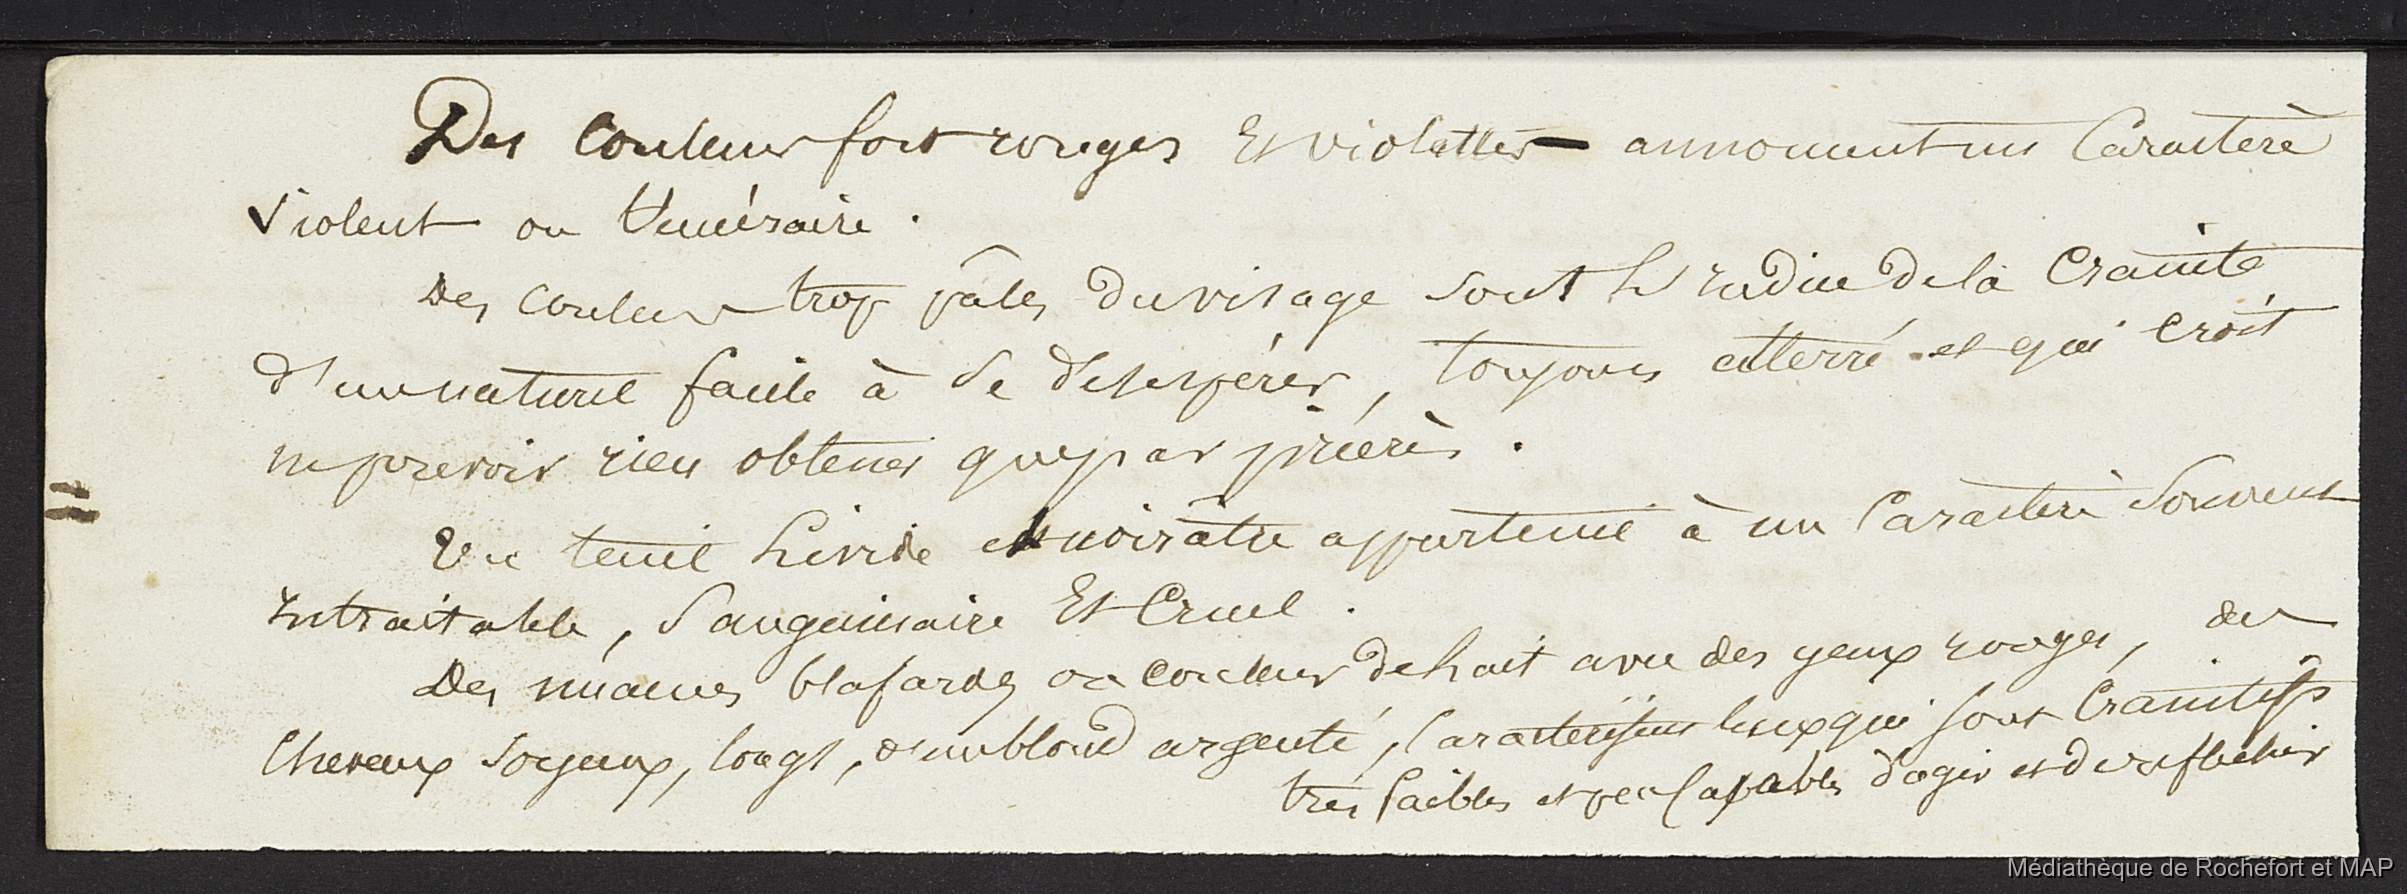 Des Couleurs fort rouges Et violettes annoncent un Caractère
Violent ou téméraire.
Des Couleurs trop pâles du visage sont le de la Crainte
d'un naturel facile à se désespérer, toujours atterré et qui croit
ne pouvoir rien obtenir que par prières.
Un teint livide et noirâtre appartient à un Caractère souvent
intraitable, sanguinaire Et Cruel.
Des nuances blafardes ou couleur de lait avec des yeux rouges, des
Cheveux soyeux, longs, d'un blond argenté, caractérisent ceux qui sont Craintifs
très faibles et peu capables d'agir et de réfléchir
Médiathèque de Rochefort et MAP